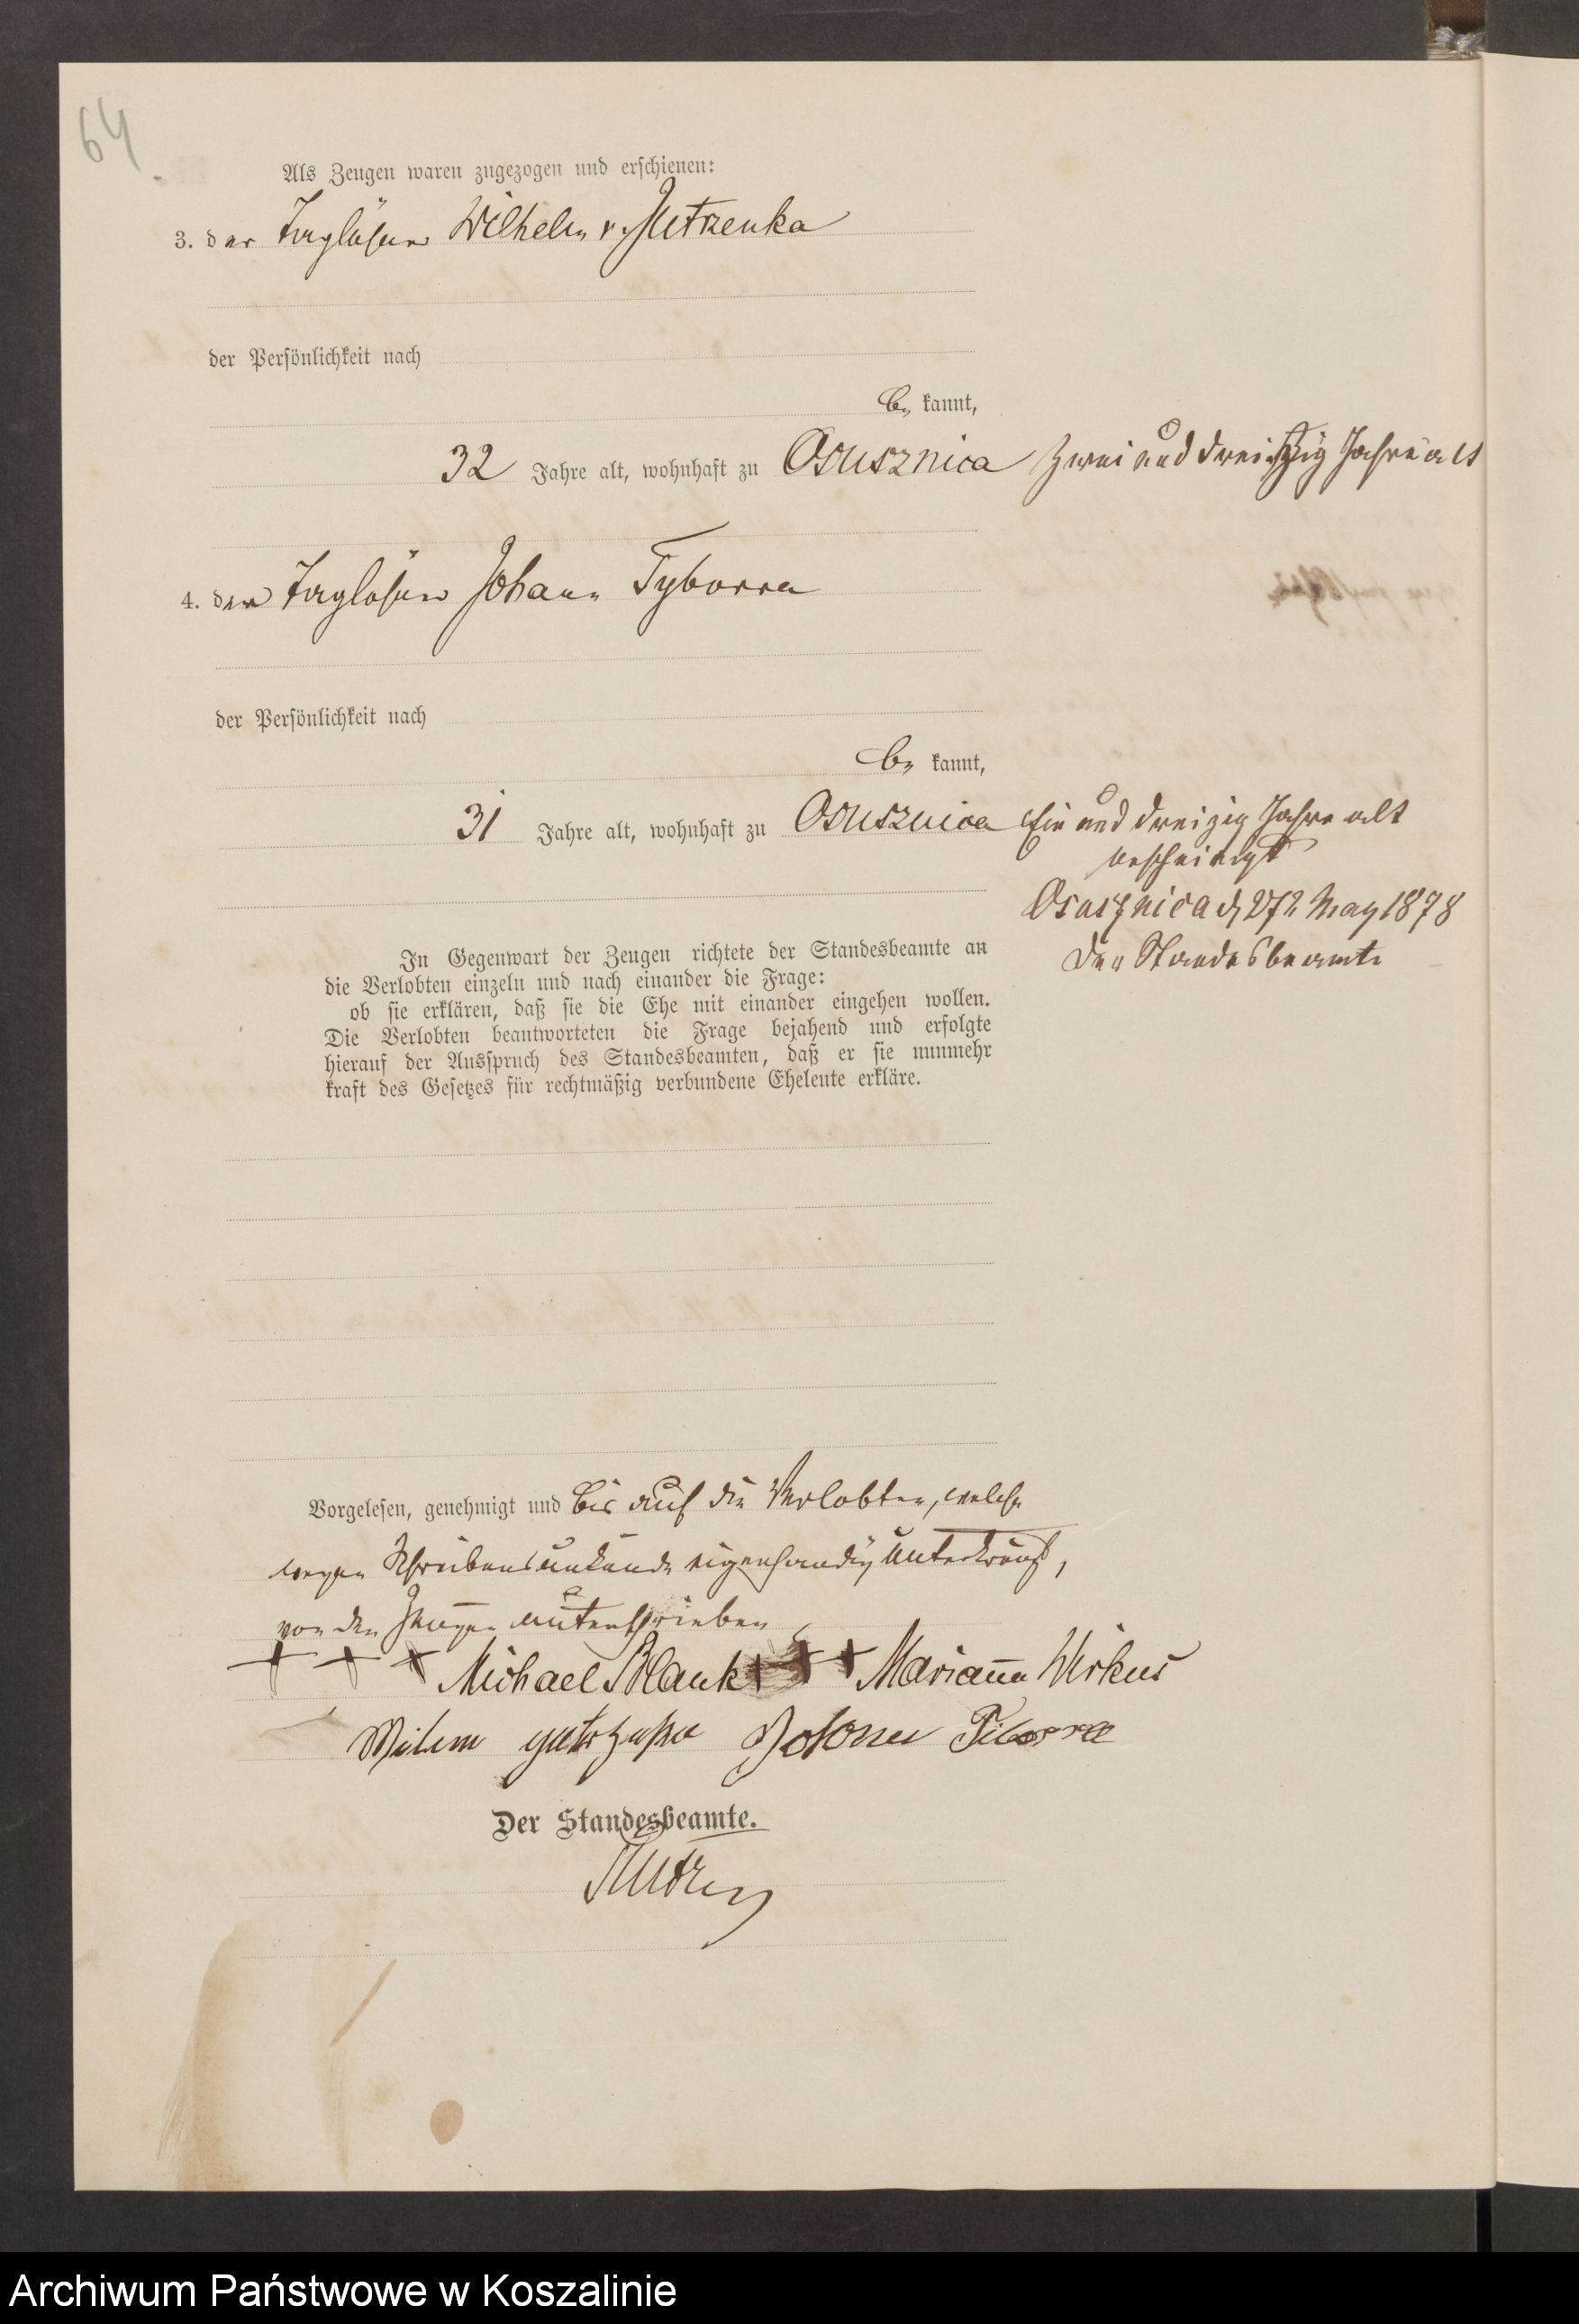 64
Als Zeugen waren zugezogen und erschienen:
3. der Taglöhner Wilhelm v. Jutrzenka
der Persönlichkeit nach
be kannt,
32 Jahre alt, wohnhaft zu Osusznica Zwei und dreißig Jahre alt
4. der Taglöhner Johann Tyborra
der Persönlichkeit nach
be kannt,
31 Jahre alt, wohnhaft zu Osusznica Ein und dreizig Jahre alt
bescheinigt
Osusznica d 27t May 1878
Der Standesbeamte
In Gegenwart der Zeugen richtete der Standesbeamte an
die Verlobten einzeln und nach einander die Frage:
ob sie erklären, daß sie die Ehe mit einander eingehen wollen.
Die Verlobten beantworteten die Frage bejahend und erfolgte
hierauf der Ausspruch des Standesbeamten, daß er sie nunmehr
kraft des Gesetzes für rechtmäßig verbundene Eheleute erkläre.
Vorgelesen, genehmigt und bis auf die Verlobten, welche
wegen Schreibensunkunde eigenhändig unterkreuzt,
von den Zeugen unterschrieben
+ + + Michael Blank + + + Marianna Wirkus
Wilem
Der Standesbeamte.
Archiwum Państwowe w Koszalinie